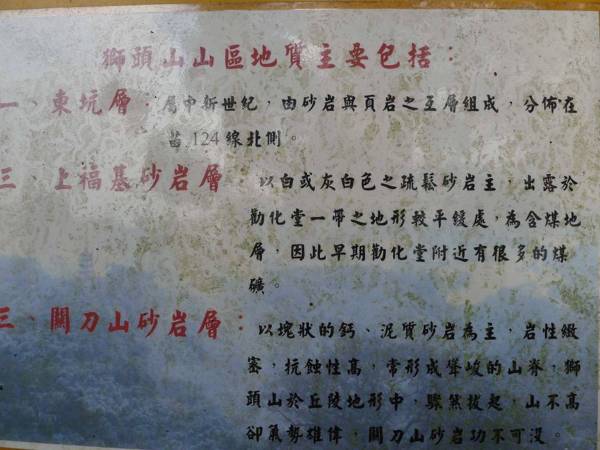 獅頭山山區地質主要包括：
一、東坑層：屬中新世紀，由砂岩與頁岩之互層組成，分佈在
苗 124 線北側。
三、上福基砂岩層：以白或灰白色之疏鬆砂岩主，出露於
勸化堂一帶之地形較平緩處，為含煤地
層，因此早期勸化堂附近有很多的煤
礦。
三、關刀山砂岩層：以塊狀的鈣、泥質砂岩為主，岩性緻
密，抗蝕性高，常形成聳峻的山脊，獅
頭山於丘陵地形中，驟然拔起，山不高
卻氣勢雄偉，關刀山砂岩功不可沒。